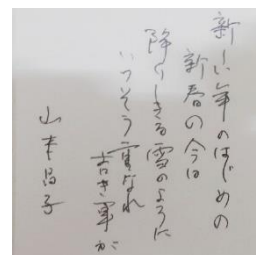 新しい年のはじめの
新春の今日
降りしきる雪のように
いっそう重なれ
吉き事が
山本昌子